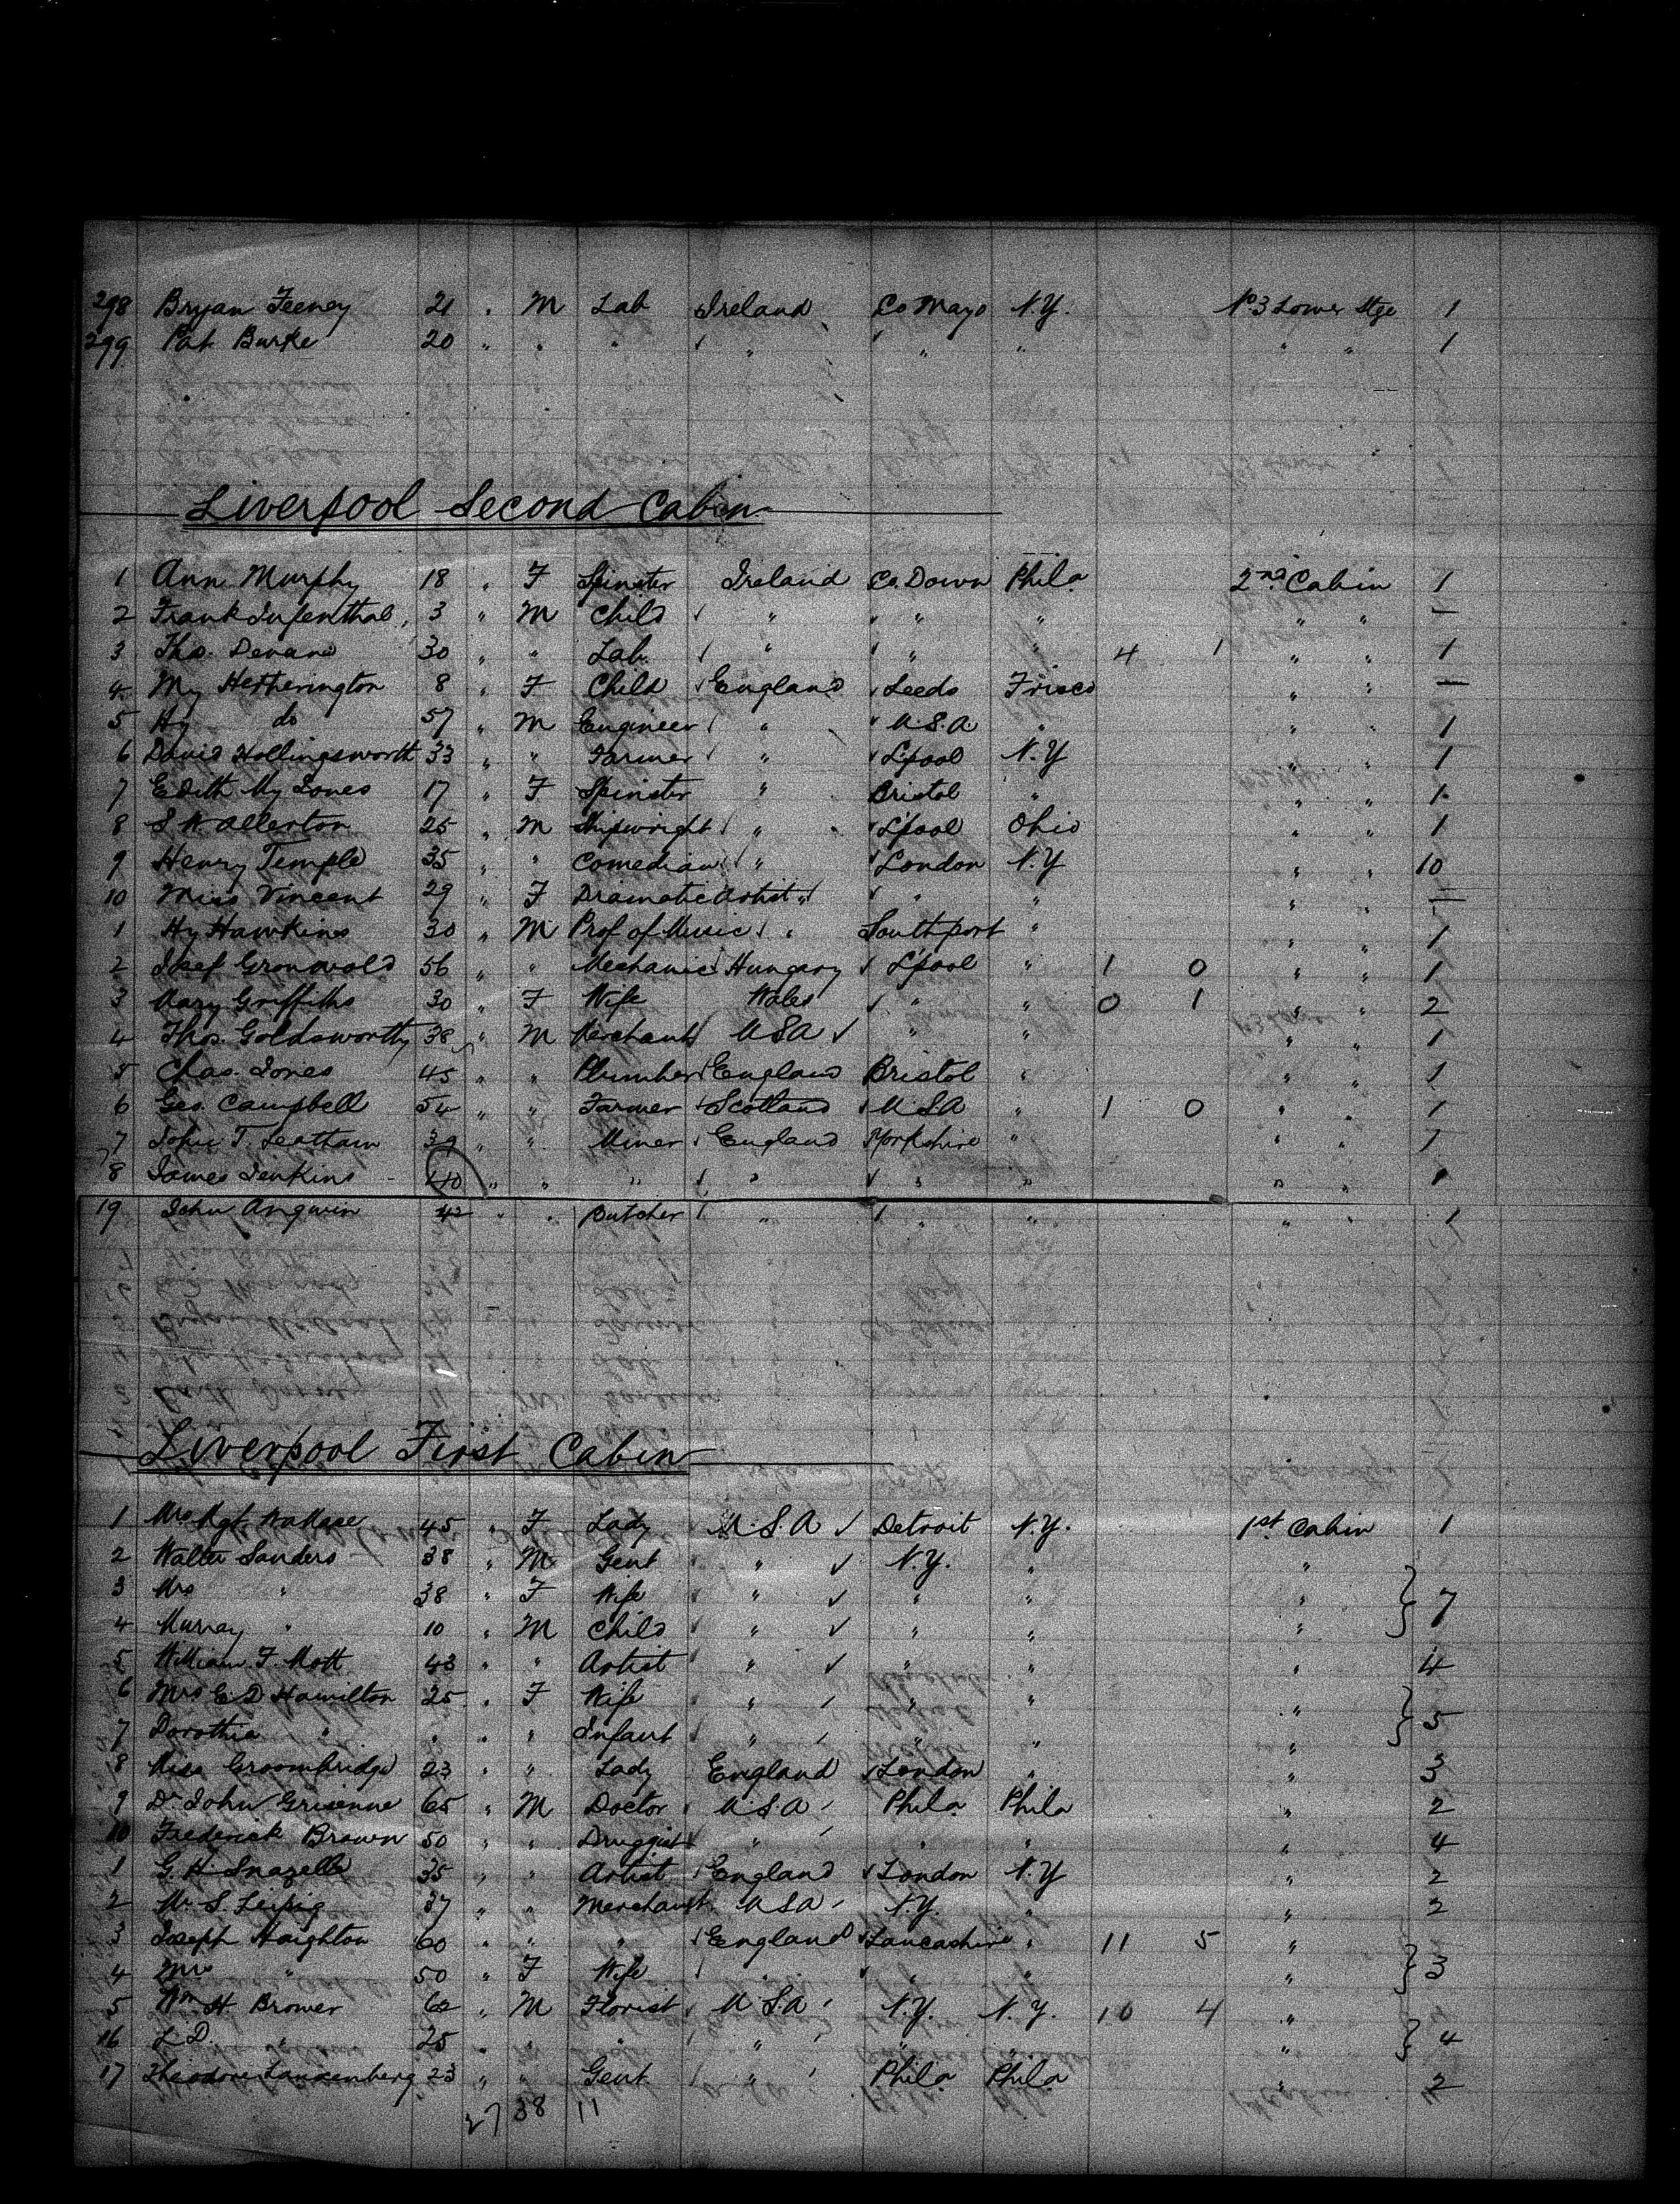 298 Bryan Feeney 21 " M Lab Ireland Co Mayo N.Y. No 3 Lower Stge 1
299 Pat Burke 20 " " " " " " " " 1
Liverpool Second Cabin
1 Ann Murphy 18 " F Spinster Ireland Co. Down Phila 2nd Cabin 1
2 Frank 3 " M Child " " " " " —
3 Thos. Devane 30 " " Lab " " " 4 1 " " 1
4 My Hetherington 8 " F Child England Leeds Frisco " " —
5 Hy do 57 " M Engineer " U.S.A. " " " 1
6 David Hollingsworth 33 " " Farmer " L'pool N.Y " " 1
7 Edith My Jones 17 " F Spinster " Bristol " " " 1
8 S W Allerton 25 " M Shipwright " L'pool Ohio " " 1
9 Henry Temple 35 " " Comedian " London N.Y " " 10
10 Miss Vincent 29 " F Dramatic Artist " " " " " —
1 Hy Hawkins 30 " M Prof of Music " Southport " " " 1
2 Josef Gronwold 56 " " Mechanic Hungary L'pool " 1 0 " " 1
3 Mary Griffiths 30 " F Wife Wales " " 0 1 " " 2
4 Thos. Goldsworthy 38 " M Merchant U S A " " " " 1
5 Chas. Jones 45 " " Plumber England Bristol " " " 1
6 Geo. Campbell 54 " " Farmer Scotland U.S.A " 1 0 " " 1
7 John T. Leatham 39 " " Miner England Yorkshire " " " 1
8 James Jenkins 40 " " " " " " " " 1
19 John Angwin 42 " " Butcher " " " " " 1
Liverpool First Cabin
1 Mrs Mgt Wallace 45 " F Lady U.S.A Detroit N.Y. 1st Cabin 1
2 Walter Sanders 38 " M Gent " N.Y. " "
3 Mrs " 38 " F Wife " " " " 7
4 Murray " 10 " M Child " " " "
5 William F. Mott 43 " " Artist " " " " 4
6 Mrs E D Hamilton 25 " F Wife " " " " 5
7 Dorothea " " " " Infant " " " "
8 Miss Groombridge 23 " " Lady England London " " 3
9 Dr John 65 " M Doctor U.S.A Phila Phila " 2
10 Frederick Brown 50 " " Druggist " " " " 4
1 G. H Snazelle 35 " " Artist England London N.Y " 2
2 M. S. Leipzig 37 " " Merchant U S A N.Y. " " 2
3 Joseph Haighton 60 " " " England Lancashire " 11 5 "
4 Mrs " 50 " F Wife " " " " 3
5 Wm H Brower 62 " M Florist U.S.A N.Y. N.Y. 10 4 "
16 L D. " 25 " " " " " " " 4
17 Theodore 23 " " Gent " Phila Phila " 2
27 38 11